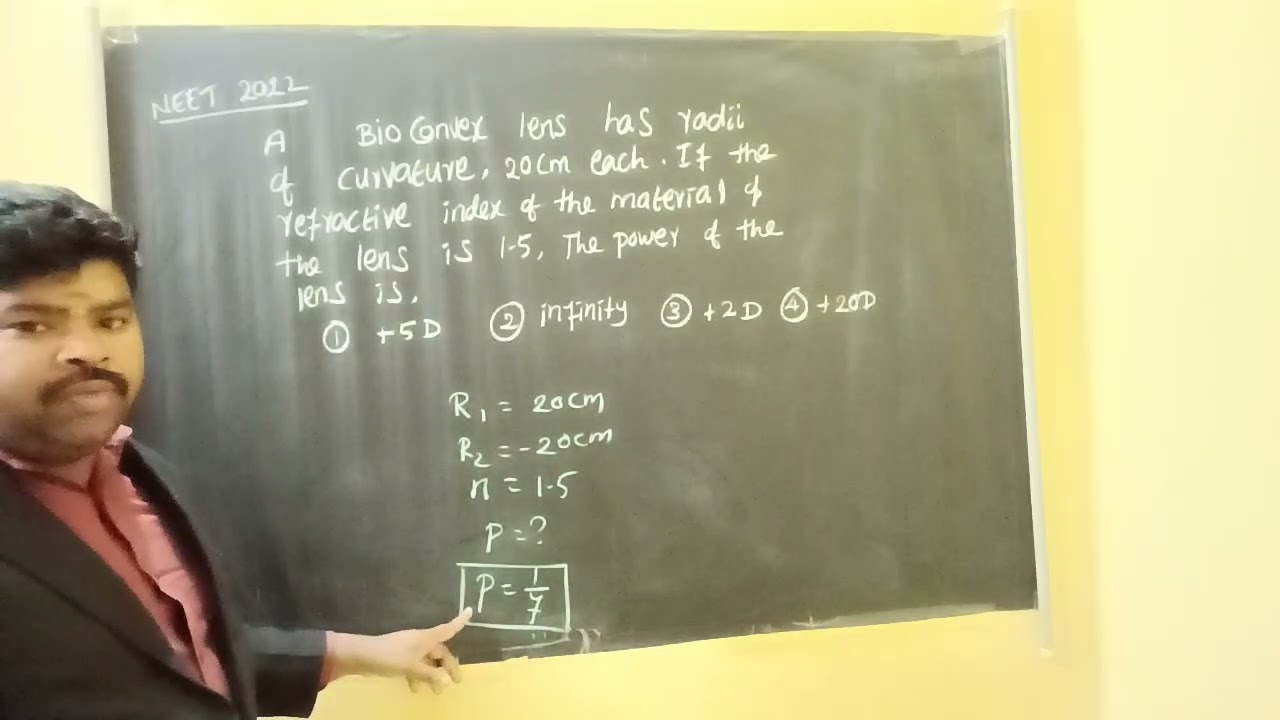 NEET 2022
A Bio Convex lens has radii
of curvature, 20cm each. If the
refractive index of the material of
the lens is 1.5, The power of the
lens is,
① +5D ② infinity ③ +2D ④ +20D
R₁ = 20cm
R₂ = -20cm
n = 1.5
P = ?
P = 1/f